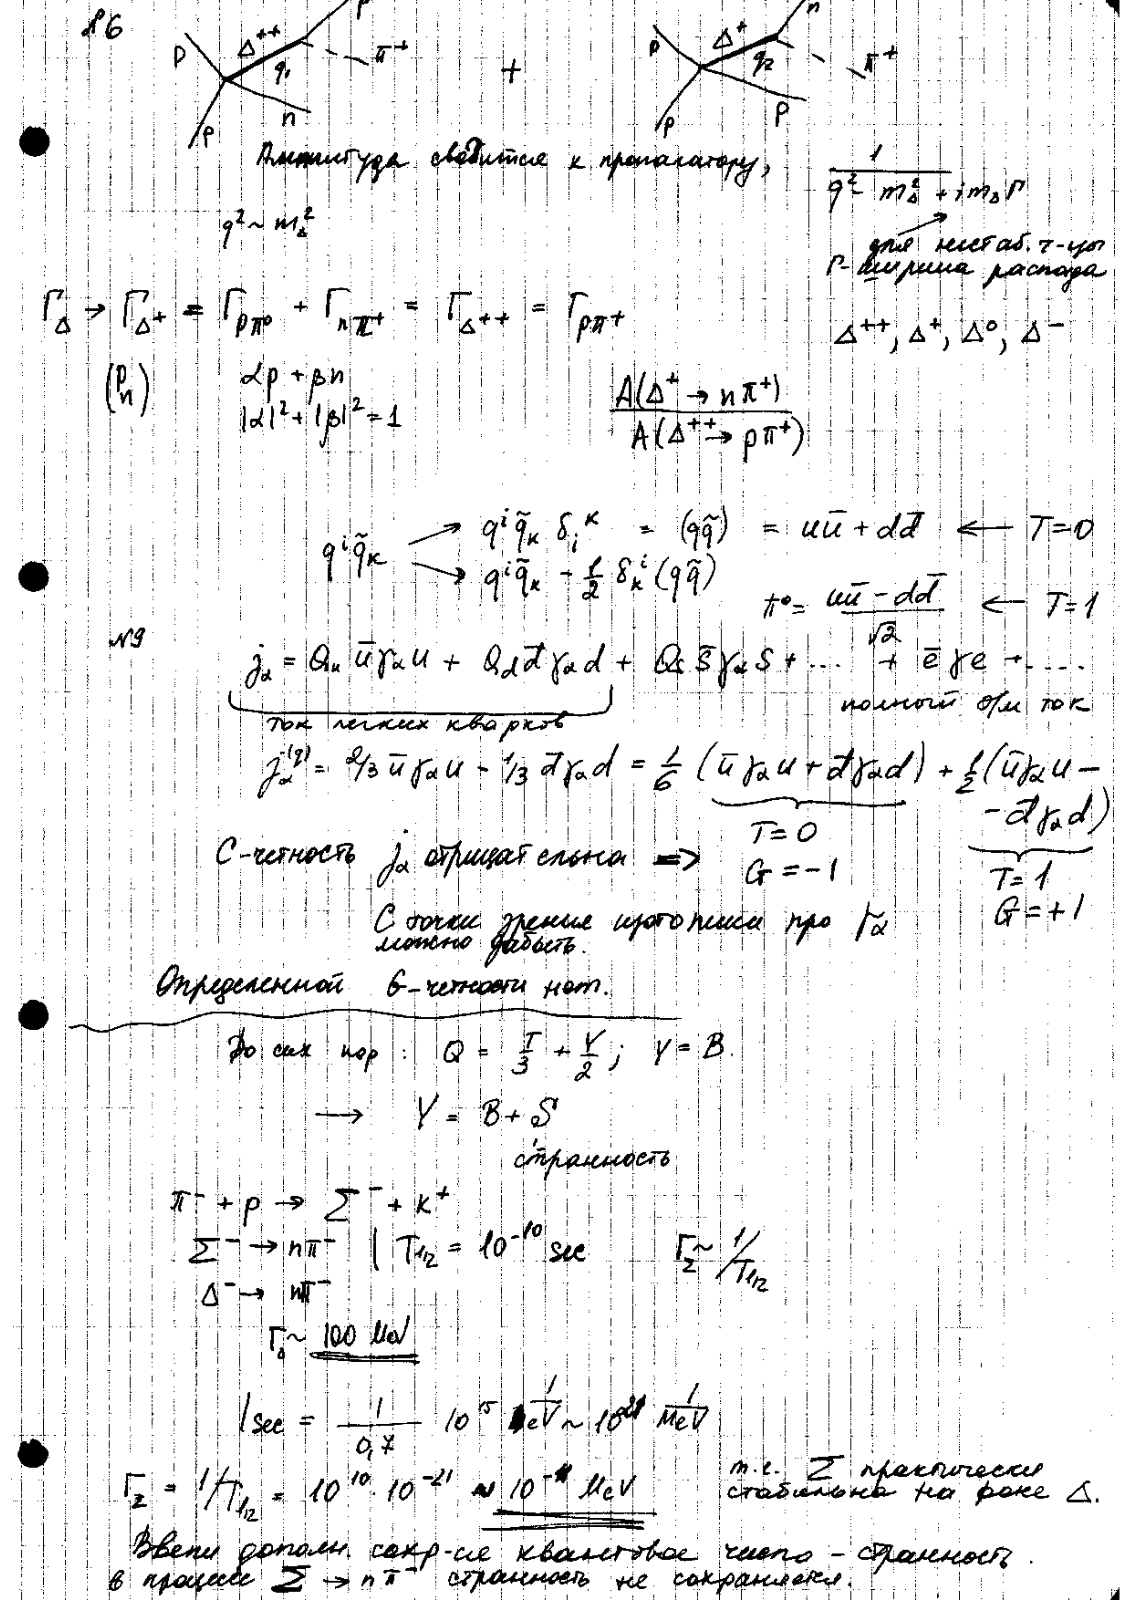 №6
p Δ⁺⁺ p π⁺ q₁ p n + p Δ⁺ n π⁺ q₂ p p
Амплитуда сводится к пропагатору, 1/(q² - m_Δ² + i m_Δ Γ)
q² ~ m_Δ²
для нестаб. ч-цы
Γ - ширина распада
Γ_Δ → Γ_Δ⁺ = Γ_pπ⁰ + Γ_nπ⁺ = Γ_Δ⁺⁺ = Γ_pπ⁺
Δ⁺⁺, Δ⁺, Δ⁰, Δ⁻
(p n) αp + βn
|α|² + |β|² = 1
A(Δ⁺ → nπ⁺) / A(Δ⁺⁺ → pπ⁺)
qⁱ q̃_k → qⁱ q̃_k δ_i^k = (q q̃) = uū + dd̄ ← T=0
→ qⁱ q̃_k - 1/2 δ_k^i (q q̃)
π⁰ = (uū - dd̄)/√2 ← T=1
№9
j_α = Q_u ū γ_α u + Q_d d̄ γ_α d + Q_s s̄ γ_α s + ... + ē γ e + ....
ток легких кварков
полный э/м ток
j_α^(q) = 2/3 ū γ_α u - 1/3 d̄ γ_α d = 1/6 (ū γ_α u + d̄ γ_α d) + 1/2 (ū γ_α u -
- d̄ γ_α d)
T=0
G=-1
T=1
G=+1
C-четность j_α отрицательна =>
С точки зрения изотопики про γ_α
можно забыть.
Определенной G-четности нет.
До сих пор: Q = T/3 + Y/2; Y = B.
→ Y = B + S
странность
π⁻ + p → Σ⁻ + K⁺
Σ⁻ → nπ⁻ | T_1/2 = 10⁻¹⁰ sec Γ_Σ ~ 1/T_1/2
Δ⁻ → nπ⁻
Γ_Δ ~ 100 MeV
1 sec = 1/0,7 10¹⁵ 1/eV ~ 10²¹ 1/MeV
Γ_Σ = 1/T_1/2 = 10¹⁰ · 10⁻²¹ ~ 10⁻¹¹ MeV
т.е. Σ практически
стабильна на фоне Δ.
Ввели дополн. сохр-ся квантовое число - странность.
в процессе Σ⁻ → nπ⁻ странность не сохраняется.